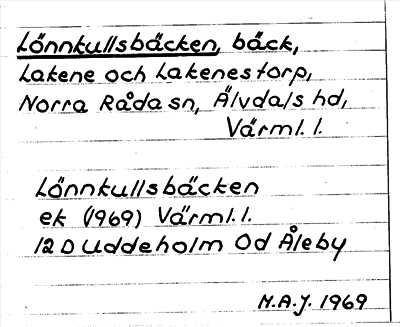 Lönnkullsbäcken, bäck,
Lakene och Lakenestorp,
Norra Råda sn, Älvdals hd,
Värml. l.
Lönnkullsbäcken
ek (1969) Värml. l.
12 D Uddeholm Od Åleby
N.A.J. 1969